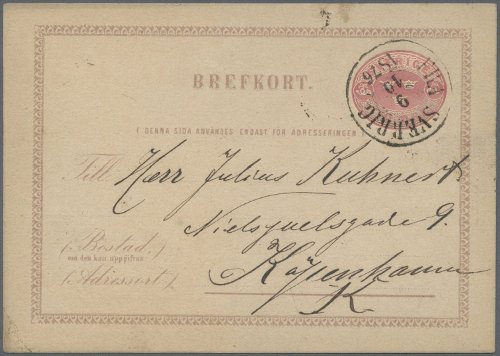 SVERIGE
FRÅN SVERIGE
9
10
1876
BREFKORT.
( DENNA SIDA ANVÄNDES ENDAST FÖR ADRESSERINGEN )
Till Herr Julius Kuhnert
Nielsjuelsgade 9.
( Bostad, )
om den kan uppgifvas
( Adressort ) Kjøpenhavn
K